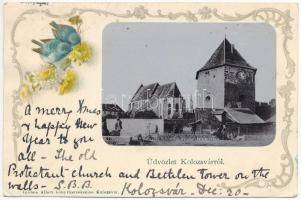 Üdvözlet Kolozsvárról.
A merry Xmas
& happy New
Year to you
all - The old
Protestant church and Bethlen Tower on the
walls - S.B.B.
Kolozsvár - Dec. 20 -
Albert Kolozsvár.